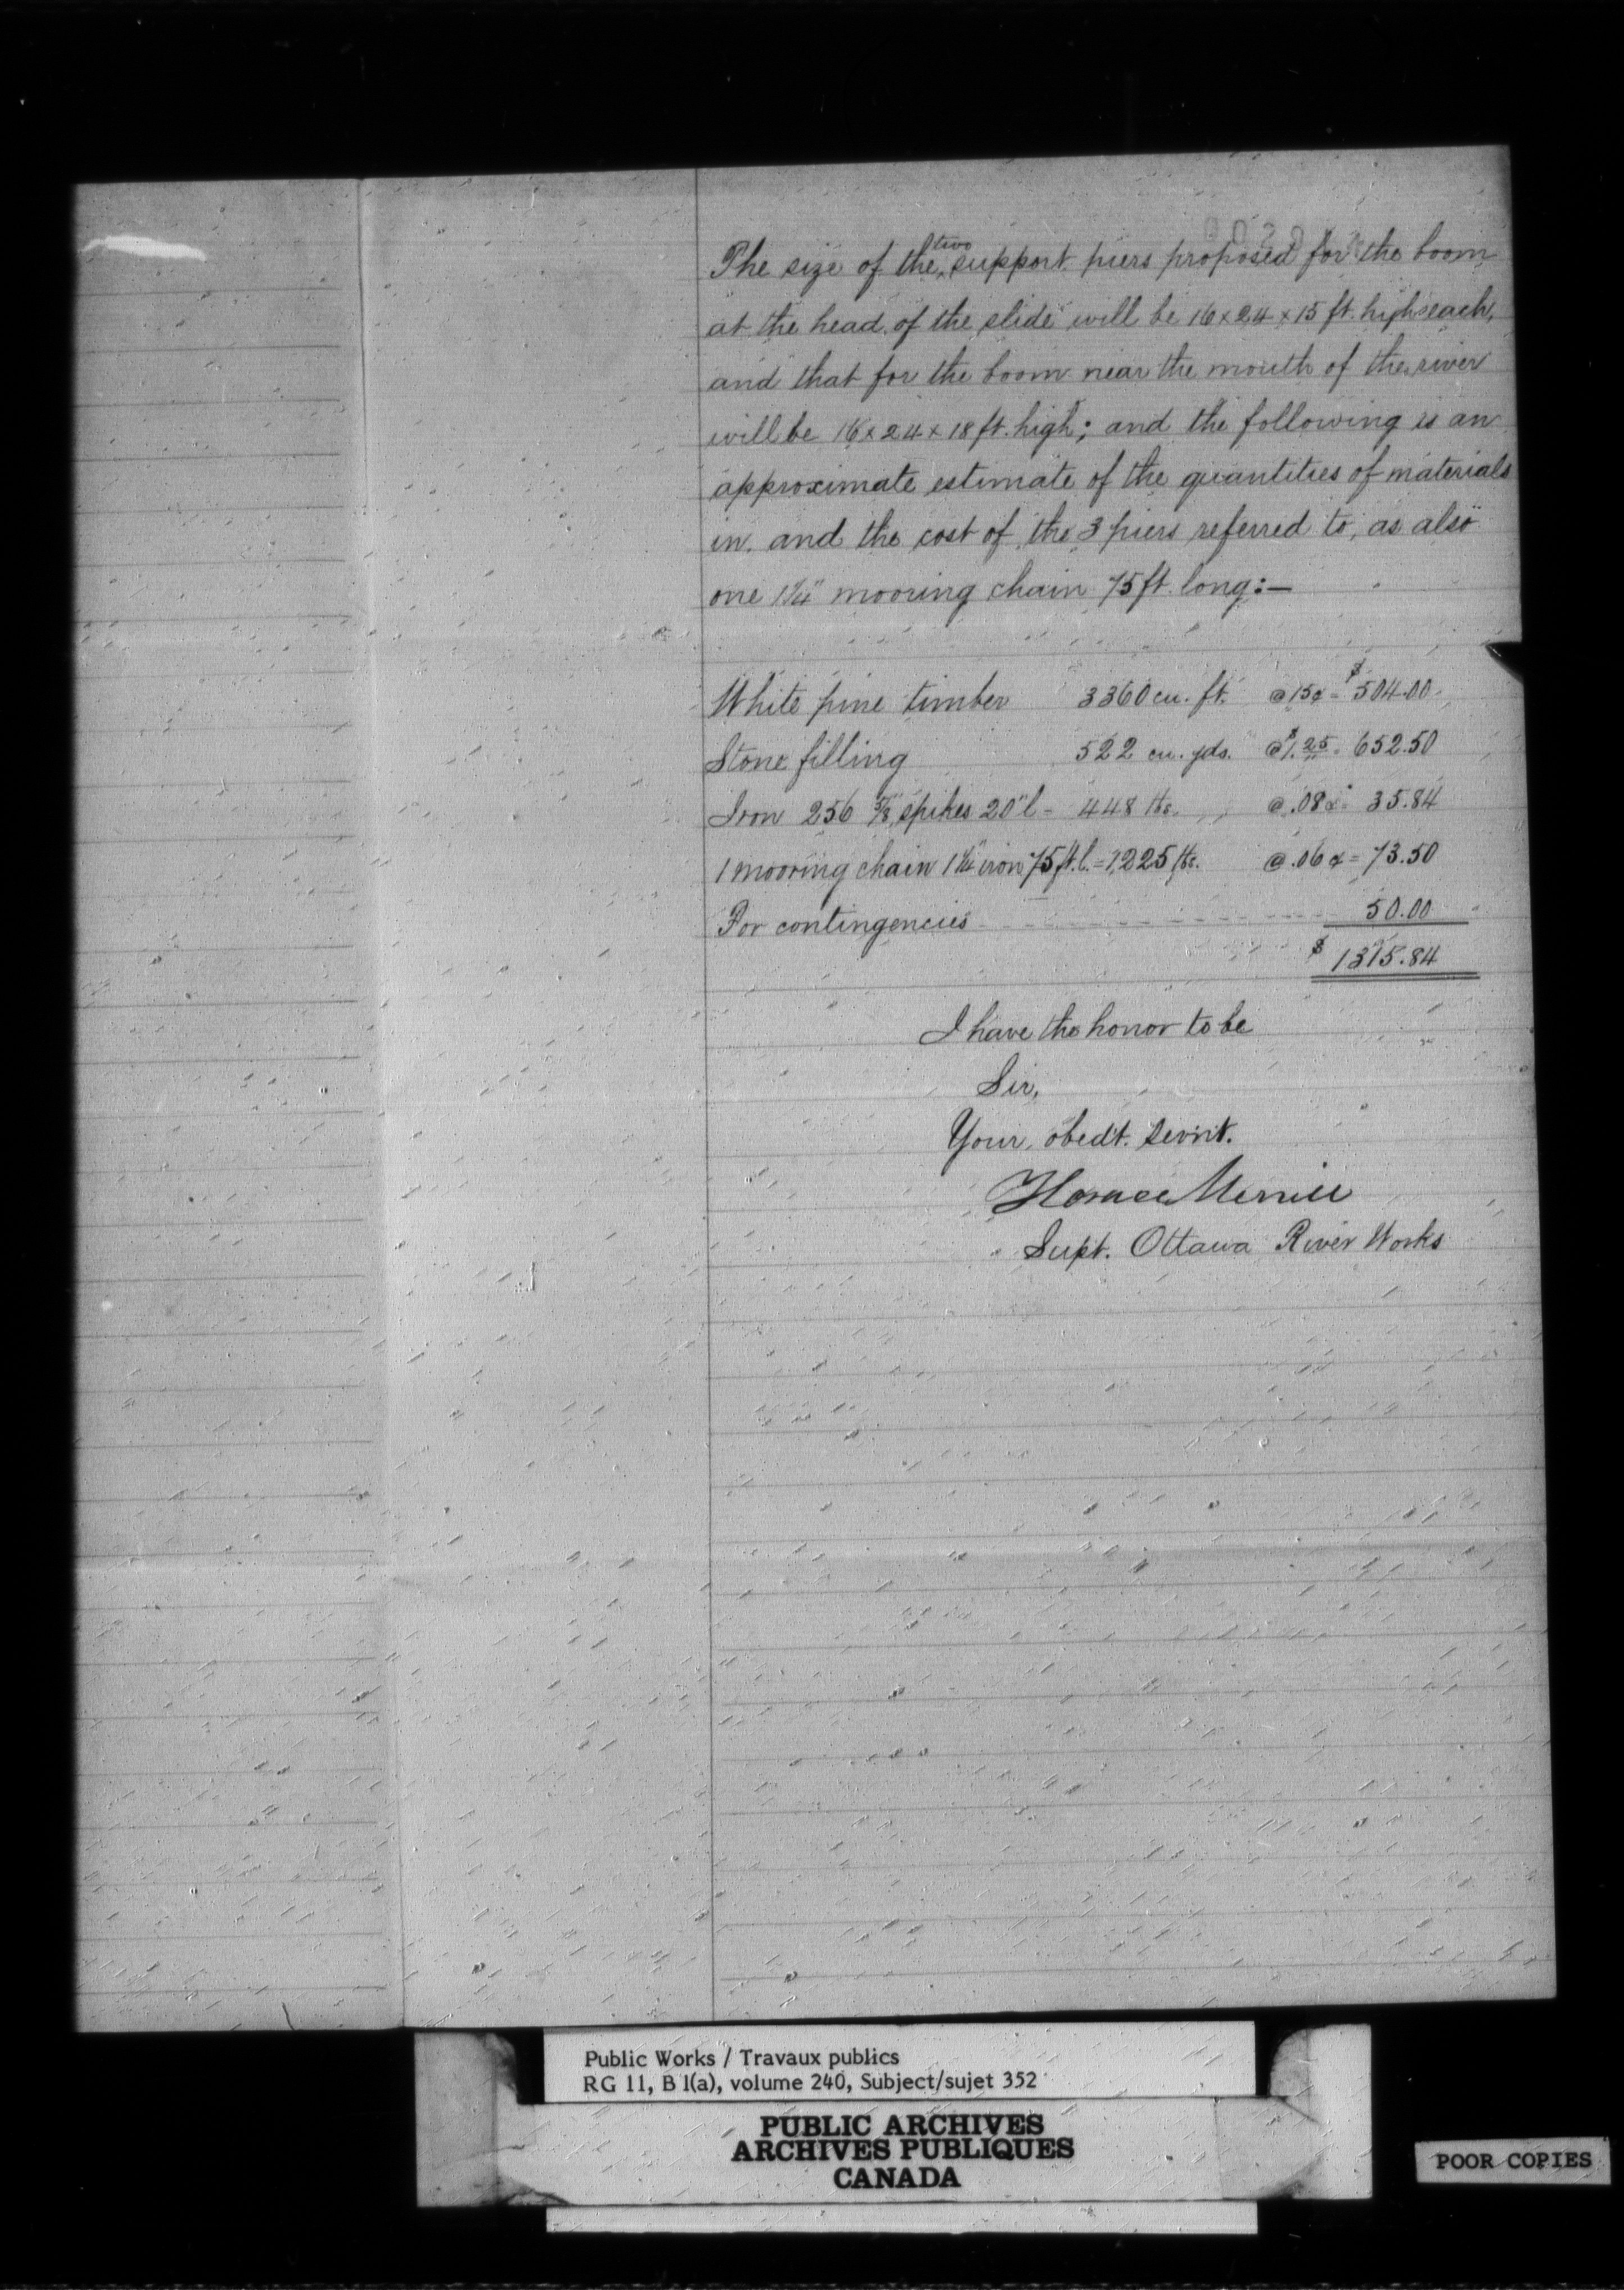 The size of the two support piers proposed for the boom
at the head of the slide will be 16 x 24 x 15 ft. high each,
and that for the boom near the mouth of the river
will be 16 x 24 x 18 ft. high; and the following is an
approximate estimate of the quantities of materials
in, and the cost of the 3 piers referred to, as also
one 1¼" mooring chain 75 ft. long:—
White pine timber 3360 cu. ft. @ 15c = $504.00
Stone filling 522 cu. yds. @ $1.25 = 652.50
Iron 256 5/8" spikes 20" l = 448 lbs. @ .08c = 35.84
1 mooring chain 1¼" iron 75 ft. l. = 1,225 lbs. @ .06c = 73.50
For contingencies 50.00
$1315.84
I have the honor to be
Sir,
Your obedt. servnt.
Horace Merrill
Supt. Ottawa River Works
Public Works / Travaux publics
RG 11, B 1(a), volume 240, Subject/sujet 352
PUBLIC ARCHIVES
ARCHIVES PUBLIQUES
CANADA
POOR COPIES